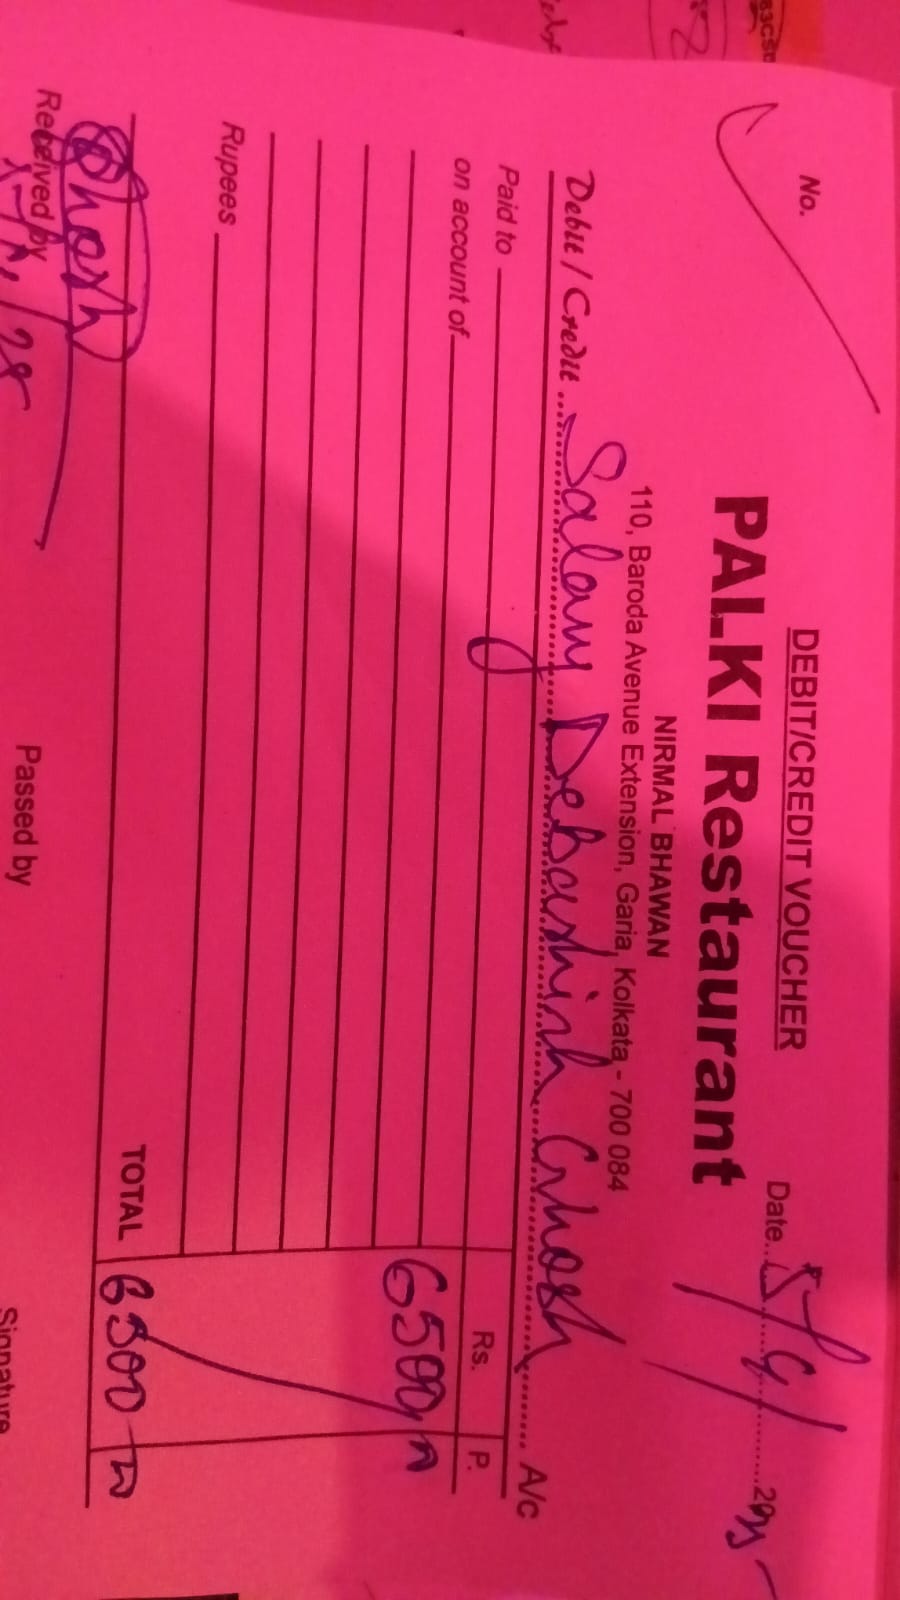 DEBIT/CREDIT VOUCHER
No.
Date
PALKI Restaurant
NIRMAL BHAWAN
110, Baroda Avenue Extension, Garia, Kolkata - 700 084
Debit / Credit Salary Debashish Ghosh A/c
Paid to
Rs. P.
on account of
6500
Rupees
TOTAL 6500
Ghosh
Received by Passed by Signature